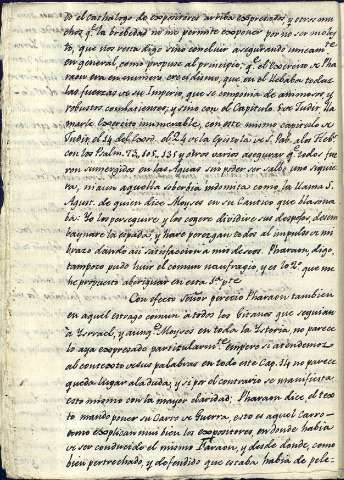 do el cathálogo de expositores arriba expresados y otros mu
chos q.e la brebedad no me permite exponer por no ser moles
to, que nos resta digo sino concluir asegurando unicam.te
en general, como propuse al principio, q.e el Exercito de Pha
raon era en numero crecidisimo, que en el llebaba todas
las fuerzas de su Imperio, que se componia de animosos y
robustos combatientes; y sino con el Capitulo 5 de Judit lla
marle Exercito innumerable, con este mismo capitulo de
Judit, el 14 del Exod. el 24 de la Epistola de S. Pab. a los Heb.s
con los Psalm. 73, 105, 135 y otros varios asegurar q.e todos fue
ron sumergidos en las Aguas sin poder ser salbo uno siquie
ra, ni aun aquella soberbia indomita como la llama S.
Agust. de quien dice Moyses en su Cantico que blasona
ba: Yo los perseguire, y los cogere dividire sus despojos, desem
baynare la espada, y hare perezcan todos al impulso de mi
brazo dando asi satisfaccion a mis deseos. Pharaon, digo,
tampoco pudo huir el comun naufragio, y es lo 2.o que me
he propuesto aberiguar en esta 3.a p.te
Con efecto Señor perecio Pharaon tambien
en aquel estrago comun a todos los Gitanos que seguian
a Ysrrael, y aunq.e Moyses en toda la Ystoria, no parece
lo aya expresado particularm.te empero si atendemos
al contexto de sus palabras en todo este Cap. 14 no parece
queda lugar a la duda; y si por el contrario se manifiesta
esto mismo con la mayor claridad; Pharaon dice, el tex
to mando poner su Carro de Guerra, esto es aquel Carro
como explican mui bien los expositores en donde habia
de ser conducido el mismo Faraon, y desde donde, como
bien pertrechado, y defendido que estaba habia de pele-